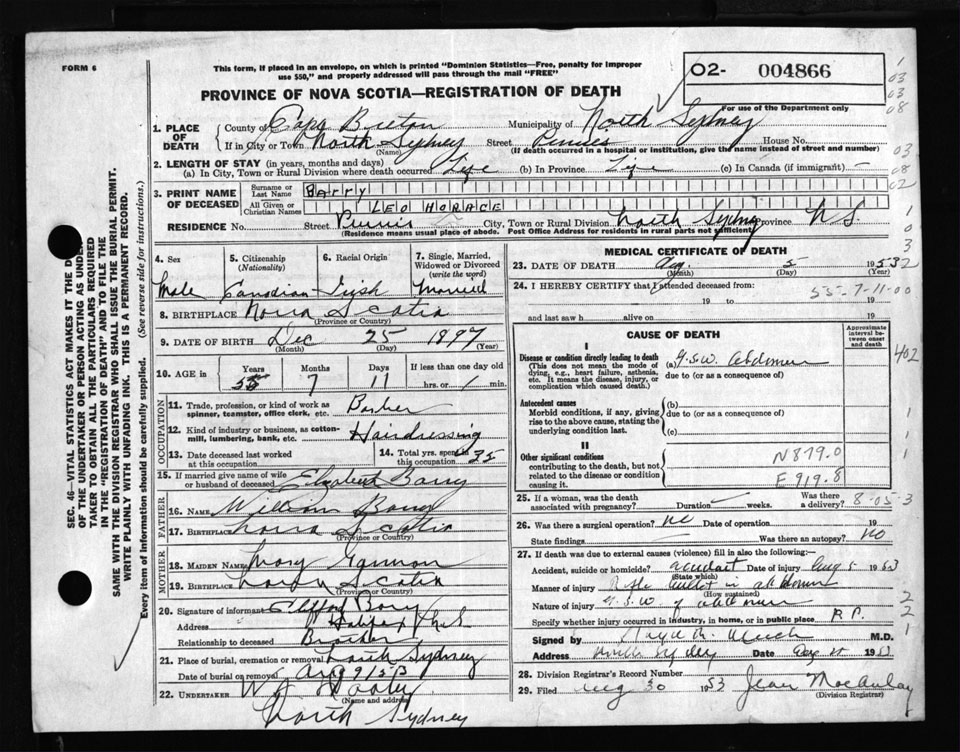 FORM 6
This form, if placed in an envelope, on which is printed "Dominion Statistics—Free, penalty for improper
use $50," and properly addressed will pass through the mail "FREE"
O2- 004866
PROVINCE OF NOVA SCOTIA—REGISTRATION OF DEATH
For use of the Department only
1. PLACE OF DEATH
County of Cape Breton Municipality of North Sydney
If in City or Town North Sydney Street House No.
(Name) (If death occurred in a hospital or institution, give the name instead of street and number)
2. LENGTH OF STAY (in years, months and days)
(a) In City, Town or Rural Division where death occurred Life (b) In Province Life (c) In Canada (if immigrant) —
3. PRINT NAME OF DECEASED
Surname or Last Name BARRY
All Given or Christian Names LEO HORACE
RESIDENCE No. Street City, Town or Rural Division North Sydney Province N.S.
(Residence means usual place of abode. Post Office Address for residents in rural parts not sufficient)
4. Sex 5. Citizenship (Nationality) 6. Racial Origin 7. Single, Married, Widowed or Divorced (write the word)
Male Canadian Irish Married
8. BIRTHPLACE Nova Scotia
(Province or Country)
9. DATE OF BIRTH Dec 25 1897
(Month) (Day) (Year)
10. AGE in Years Months Days If less than one day old
55 7 11 hrs. or min.
OCCUPATION
11. Trade, profession, or kind of work as spinner, teamster, office clerk, etc. Barber
12. Kind of industry or business, as cotton-mill, lumbering, bank, etc. Hairdressing
13. Date deceased last worked at this occupation
14. Total yrs. spent in this occupation 35
15. If married give name of wife or husband of deceased Elizabeth Barry
FATHER
16. NAME William Barry
17. BIRTHPLACE Nova Scotia
(Province or Country)
MOTHER
18. MAIDEN NAME Mary Gannon
19. BIRTHPLACE Nova Scotia
(Province or Country)
20. Signature of informant Clifford Barry
Address Halifax N.S.
Relationship to deceased Brother
21. Place of burial, cremation or removal North Sydney
Date of burial or removal Aug 9/53
22. UNDERTAKER W
(Name and address)
North Sydney
MEDICAL CERTIFICATE OF DEATH
23. DATE OF DEATH Aug. 5 1953
(Month) (Day) (Year)
24. I HEREBY CERTIFY that I attended deceased from:
19 to 19
and last saw h alive on 19
55-7-11-00
CAUSE OF DEATH
Approximate interval between onset and death
I
Disease or condition directly leading to death
(This does not mean the mode of dying, e.g., heart failure, asthenia, etc. It means the disease, injury, or complication which caused death.)
(a) G.S.W. Abdomen
due to (or as a consequence of)
Antecedent causes
Morbid conditions, if any, giving rise to the above cause, stating the underlying condition last.
(b)
due to (or as a consequence of)
(c)
II
Other significant conditions
contributing to the death, but not related to the disease or condition causing it.
N879.0
E919.8
25. If a woman, was the death associated with pregnancy? Duration weeks. Was there a delivery?
8-05-3
26. Was there a surgical operation? no Date of operation 19
State findings Was there an autopsy? no
27. If death was due to external causes (violence) fill in also the following:
Accident, suicide or homicide? accident Date of injury Aug 5 1953
(State which)
Manner of injury Rifle bullet in abdomen
(How sustained)
Nature of injury G.S.W. of abdomen
Specify whether injury occurred in industry, in home, or in public place P.P.
Signed by M.D.
Address North Sydney Date Aug 1953
28. Division Registrar's Record Number
29. Filed Aug 30 1953 Jean MacAulay
(Division Registrar)
SEC. 46—VITAL STATISTICS ACT MAKES IT THE
OF THE UNDERTAKER OR PERSON ACTING AS
TAKER TO OBTAIN ALL THE PARTICULARS REQUIRED
IN THE "REGISTRATION OF DEATH" AND TO FILE THE
SAME WITH THE DIVISION REGISTRAR WHO SHALL ISSUE THE BURIAL PERMIT.
WRITE PLAINLY WITH UNFADING INK. THIS IS A PERMANENT RECORD.
Every item of information should be carefully supplied. (See reverse side for instructions.)
402